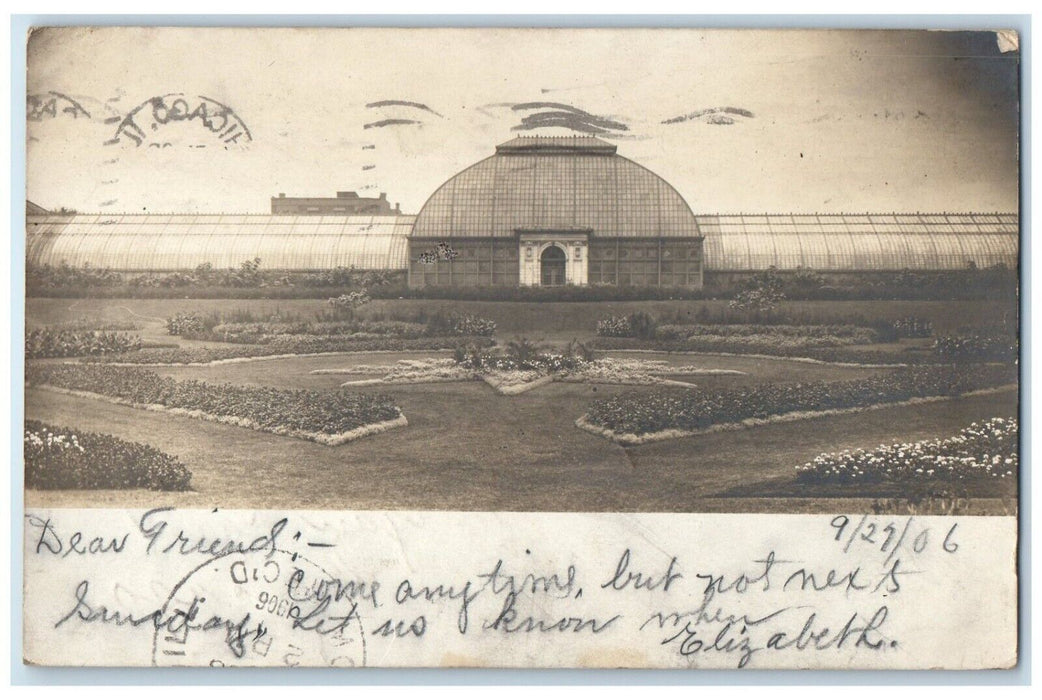 CHICAGO, IL
9/29/06
Dear Friend:—
Come anytime, but not next
Sunday, Let us know when
Elizabeth.
REC'D
1906